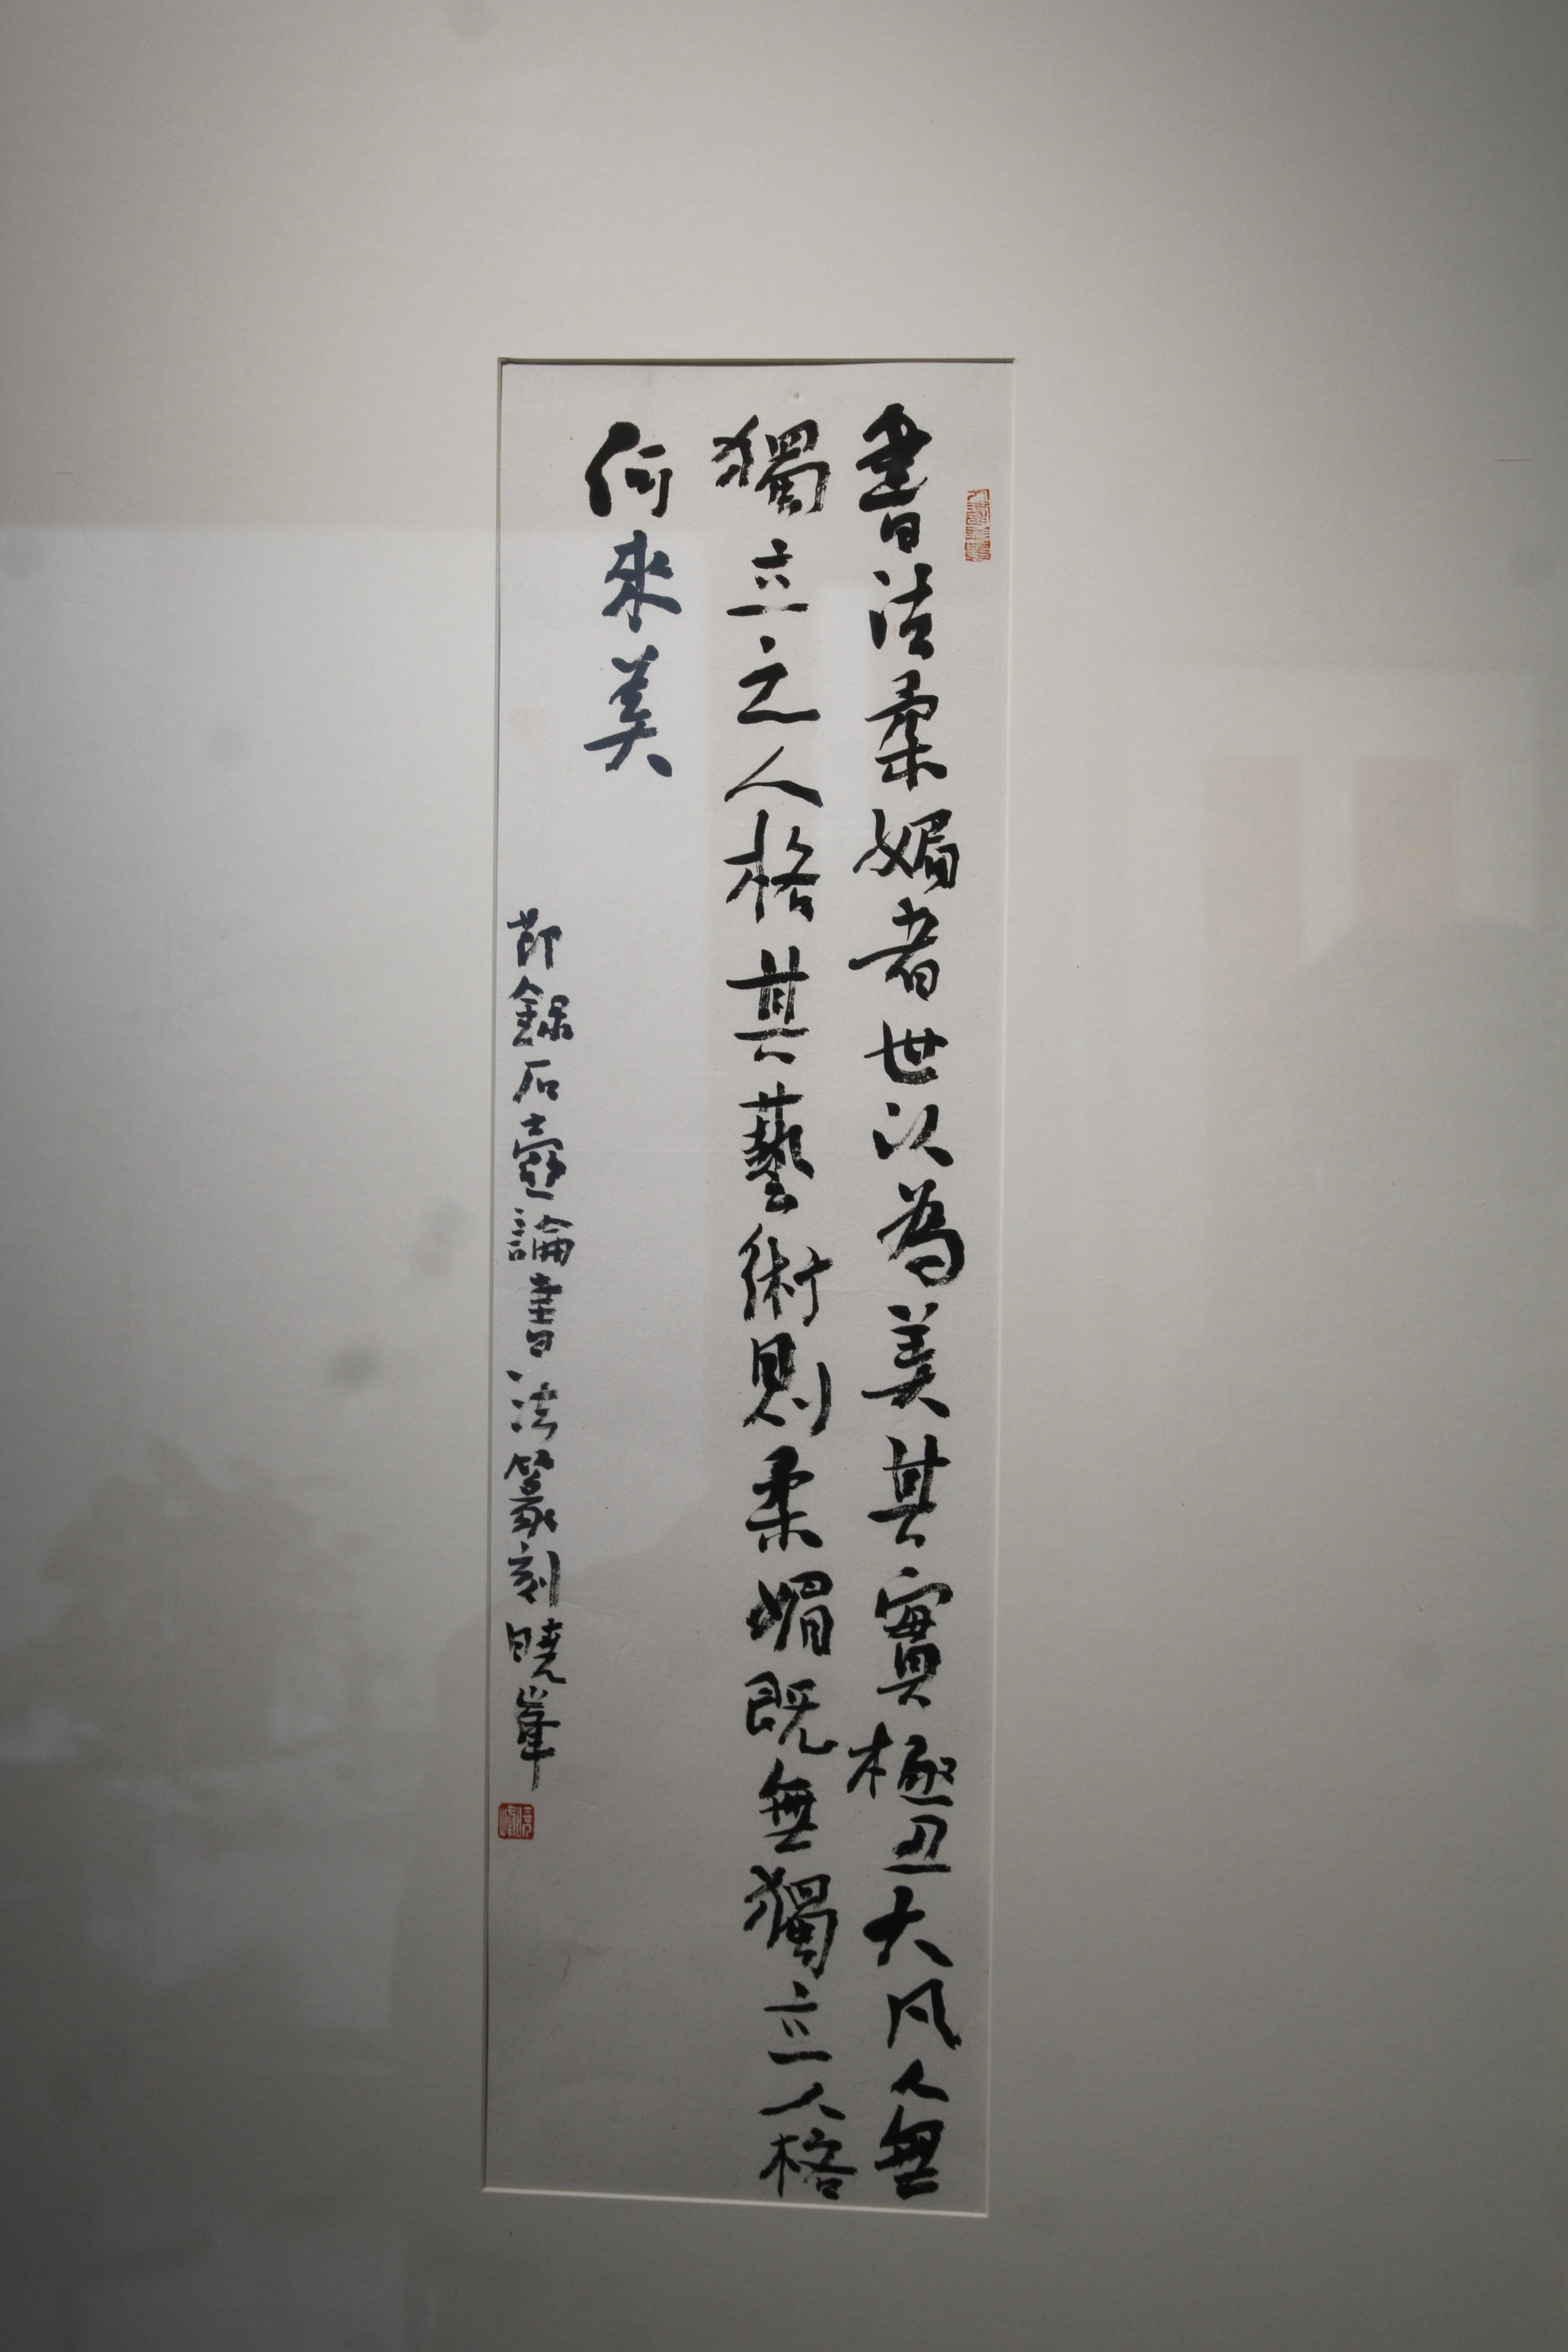 書法柔媚者世以為美其實極丑大凡人無
獨立之人格其藝術則柔媚既無獨立人格
何來美
節錄石壺論書法篆刻曉峯